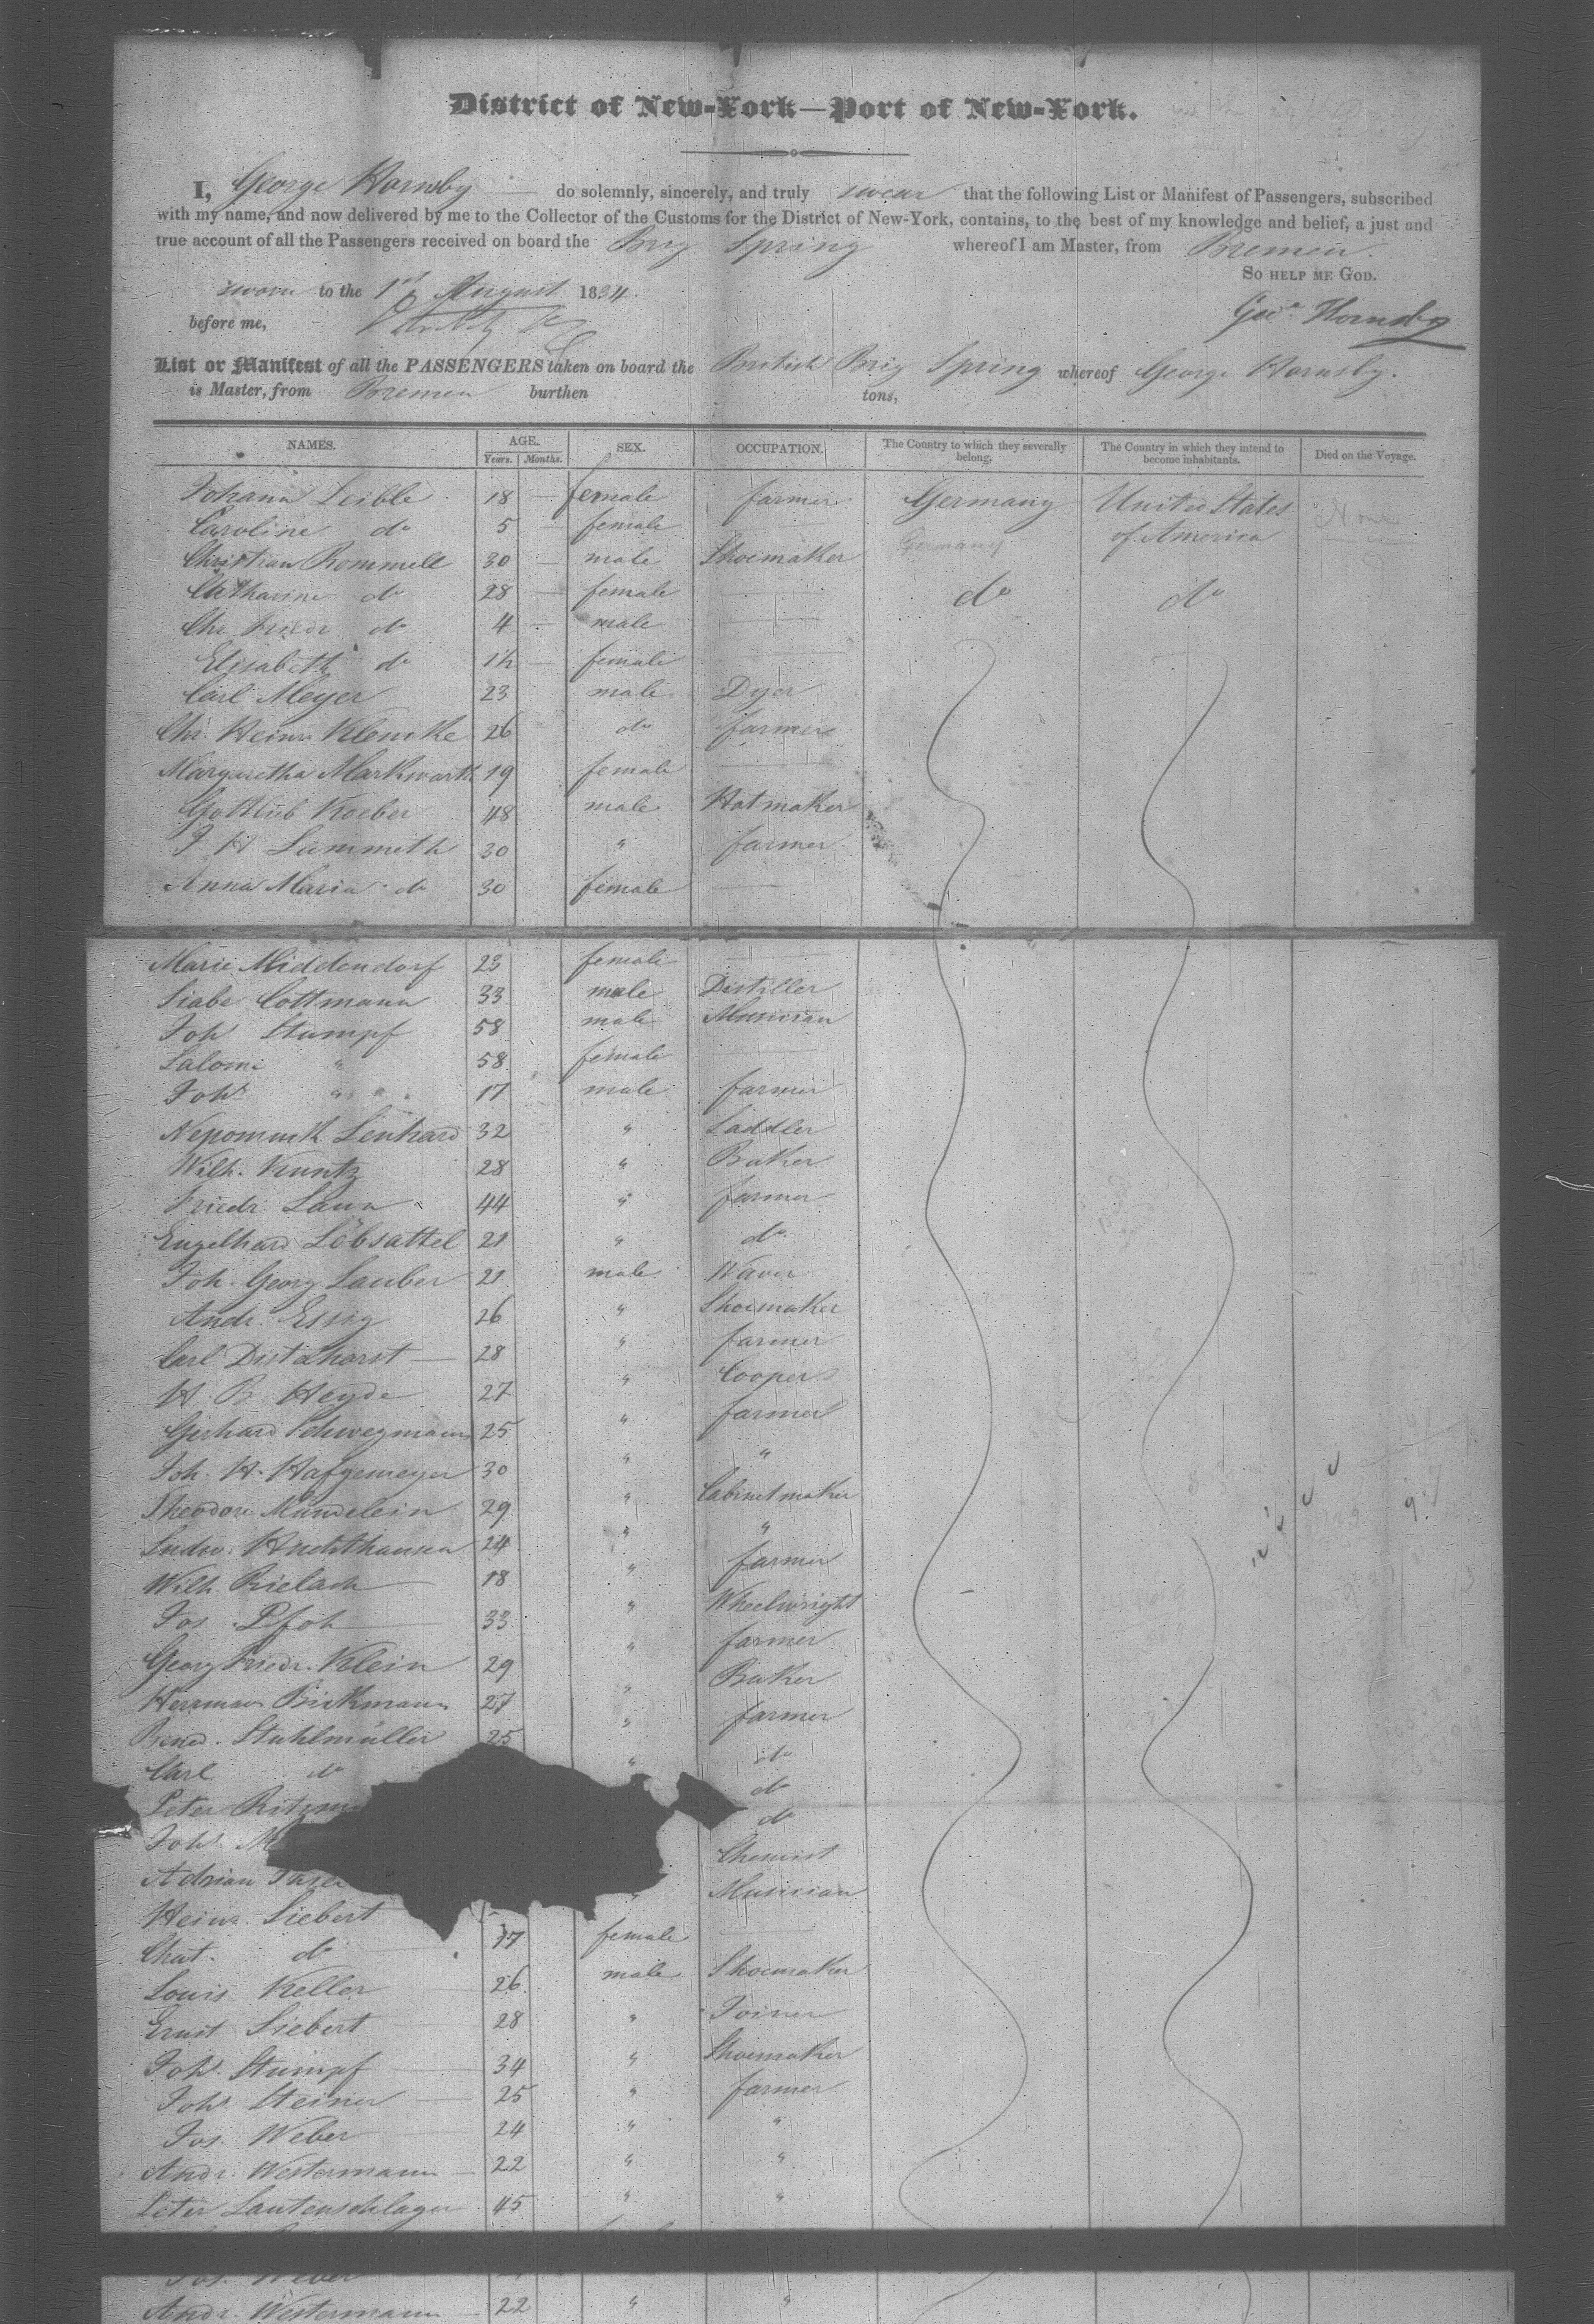 District of New-York—Port of New-York.
I, George Hornsby do solemnly, sincerely, and truly swear that the following List or Manifest of Passengers, subscribed
with my name, and now delivered by me to the Collector of the Customs for the District of New-York, contains, to the best of my knowledge and belief, a just and
true account of all the Passengers received on board the Brig Spring whereof I am Master, from Bremen.
So help me God.
sworn to the 1st August 1834.
before me,
Geo. Hornsby
List or Manifest of all the PASSENGERS taken on board the British Brig Spring whereof George Hornsby.
is Master, from Bremen burthen tons,
NAMES. AGE. SEX. OCCUPATION. The Country to which they severally belong. The Country in which they intend to become inhabitants. Died on the Voyage.
Years. Months.
Johana Leible 18 — female farmer Germany United States None
Caroline do 5 — female of America
Christian Rommell 30 — male Shoemaker Germany
Catharine do 28 — female do do
Chr. Friedr do 4 — male
Elisabeth do 1½ — female
Carl Meyer 23 male Dyer
Chr. Heinr. Klemke 26 do farmer
Margaretha Markwarth 19 female
Gottlieb Koeber 48 male Hatmaker
J H Lammeth 30 " farmer
Anna Maria do 30 female
Marie Middendorf 23 female
Siabe Cottmann 33 male Distiller
Joh Stumpf 58 male Musician
Salomi " 58 female
Joh " 17 male farmer
Nepomuk Lenhard 32 " Saddler
Wilh. Kuntz 28 " Baker
Friedr. Laun 44 " farmer
Engelhard Löbsattel 21 " do
Joh. Georg Lauber 21 male Waver
Andr. Essig 26 " Shoemaker
Carl Distelhorst — 28 " farmer
H. B. Heyde 27 " Cooper
Gerhard Schwegmann 25 " farmer
Joh. H. Hafgemeyer 30 " "
Theodore Mündelein 29 " Cabinetmaker
Ludw. 24 " "
Wilh. Rielach 18 " farmer
Jos. Pfoh 33 " Wheelwright
Georg Friedr. Klein 29 " farmer
Herrman Birkmann 27 " Baker
Bened. Stuhlmüller 25 " farmer
Carl do " do
Peter do
Joh. do
Adrian Chemist
Heinr. Siebert " Musician
Chat. do 17 female
Louis Keller 26 male Shoemaker
Ernst Siebert 28 " Joiner
Joh. Stumpf 34 " Shoemaker
Joh. Steiner 25 " farmer
Jos. Weber 24 " "
Andr. Westermann — 22 " "
Peter Lautenschlager 45 " "
Jos. Weber
Andr. Westermann — 22 " "